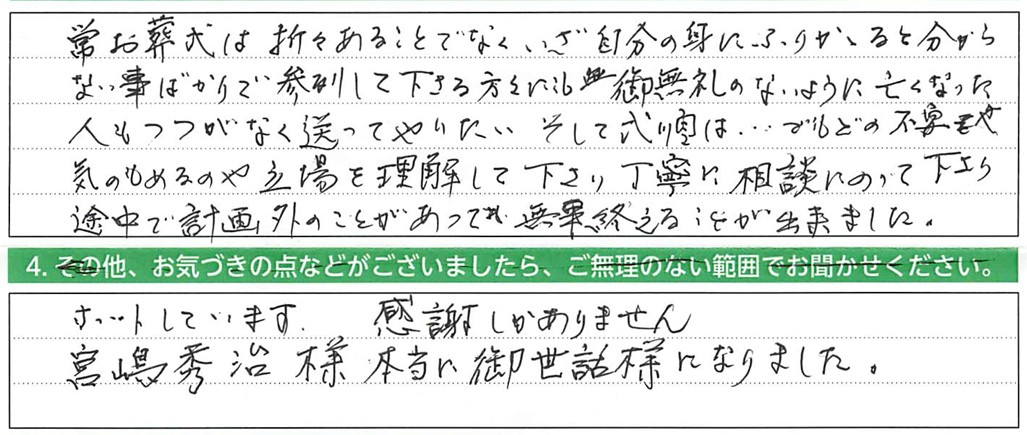 常お葬式は折々あることでなくいざ自分の身にふりかゝると分から
ない事ばかりで参列して下さる方々にも御無礼のないように亡くなった
人もつつがなく送ってやりたい そして式順は…でもどの不安や
気のもめるのや立場を理解して下さり丁寧に相談にのって下さり
途中で計画外のことがあっても無事終えることが出来ました。
4. その他、お気づきの点などがございましたら、ご無理のない範囲でお聞かせください。
ホットしています. 感謝しかありません
宮嶋秀治様 本当に御世話様になりました。